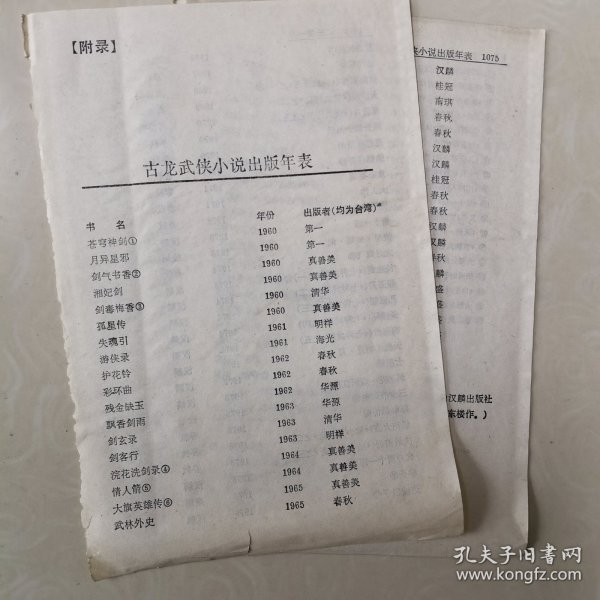 【附录】
古龙武侠小说出版年表
书 名 年份 出版者(均为台湾)*
苍穹神剑① 1960 第一
月异星邪 1960 第一
剑气书香② 1960 真善美
湘妃剑 1960 真善美
剑毒梅香③ 1960 清华
孤星传 1960 真善美
失魂引 1961 明祥
游侠录 1961 海光
护花铃 1962 春秋
彩环曲 1962 春秋
残金缺玉 1962 华源
飘香剑雨 1963 华源
剑玄录 1963 清华
剑客行 1963 明祥
浣花洗剑录④ 1964 真善美
情人箭⑤ 1964 真善美
大旗英雄传⑥ 1965 真善美
武林外史 1965 春秋
侠小说出版年表 1075
汉麟
桂冠
南琪
春秋
春秋
汉麟
汉麟
桂冠
春秋
春秋
汉麟
汉麟
春秋
盛
盛
汉麟出版社
东楼作。)
孔夫子旧书网
www.kongfz.com